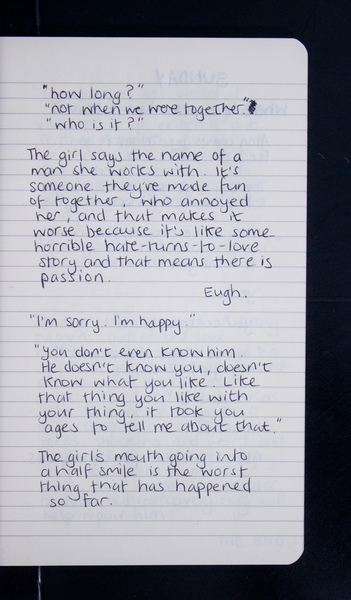 "how long?"
"not when we were together"
"who is it?"
The girl says the name of a
man she works with. It's
someone they've made fun
of together, who annoyed
her, and that makes it
worse because it's like some
horrible hate-turns-to-love
story and that means there is
passion.
Eugh.
"I'm sorry. I'm happy."
"you don't even know him.
He doesn't know you, doesn't
know what you like. Like
that thing you like with
your thing, it took you
ages to tell me about that."
The girl's mouth going into
a half smile is the worst
thing that has happened
so far.